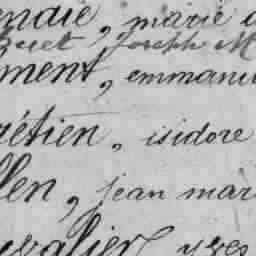 endic, marie
Beret Joseph M
ment, emmanu
rétien, isidore
llen, jean mar
evalier, yves